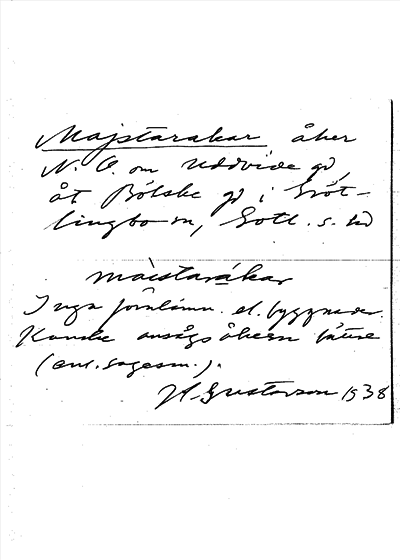 Majstarakar, åker
N. O. om Uddvide gd,
åt Bölske gd i Gröt-
lingbo sn, Gotl. s. hd
màistarákar
Inga fornlämn. el. byggnader.
Kanske ansågs åkern bättre
(enl. sagesm.).
H. Gustavson 1938